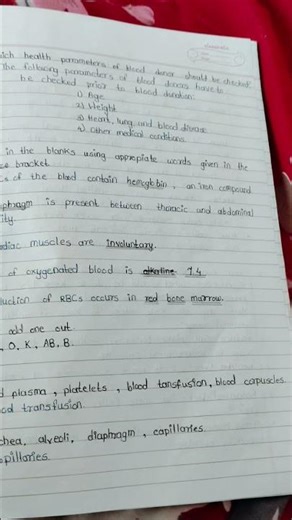 ich health parameters of blood donor should be checked?
The following parameters of blood donors have to
be checked prior to blood donation.
1) Age
2) Weight
3) Heart, lung and blood disease
4) Other medical conditions
in the blanks using appropiate words given in the
bracket.
of the blood contain hemoglobin, an iron compound
phragm is present between thoracic and abdominal
ity.
diac muscles are involuntary.
of oxygenated blood is alkaline 7.4
duction of RBCs occurs in red bone marrow.
odd one out.
, O, K, AB, B.
d plasma, platelets, blood tansfusion, blood capuscules
od transfusion
chea, alveoli, diaphragm, capillaries
apillaries